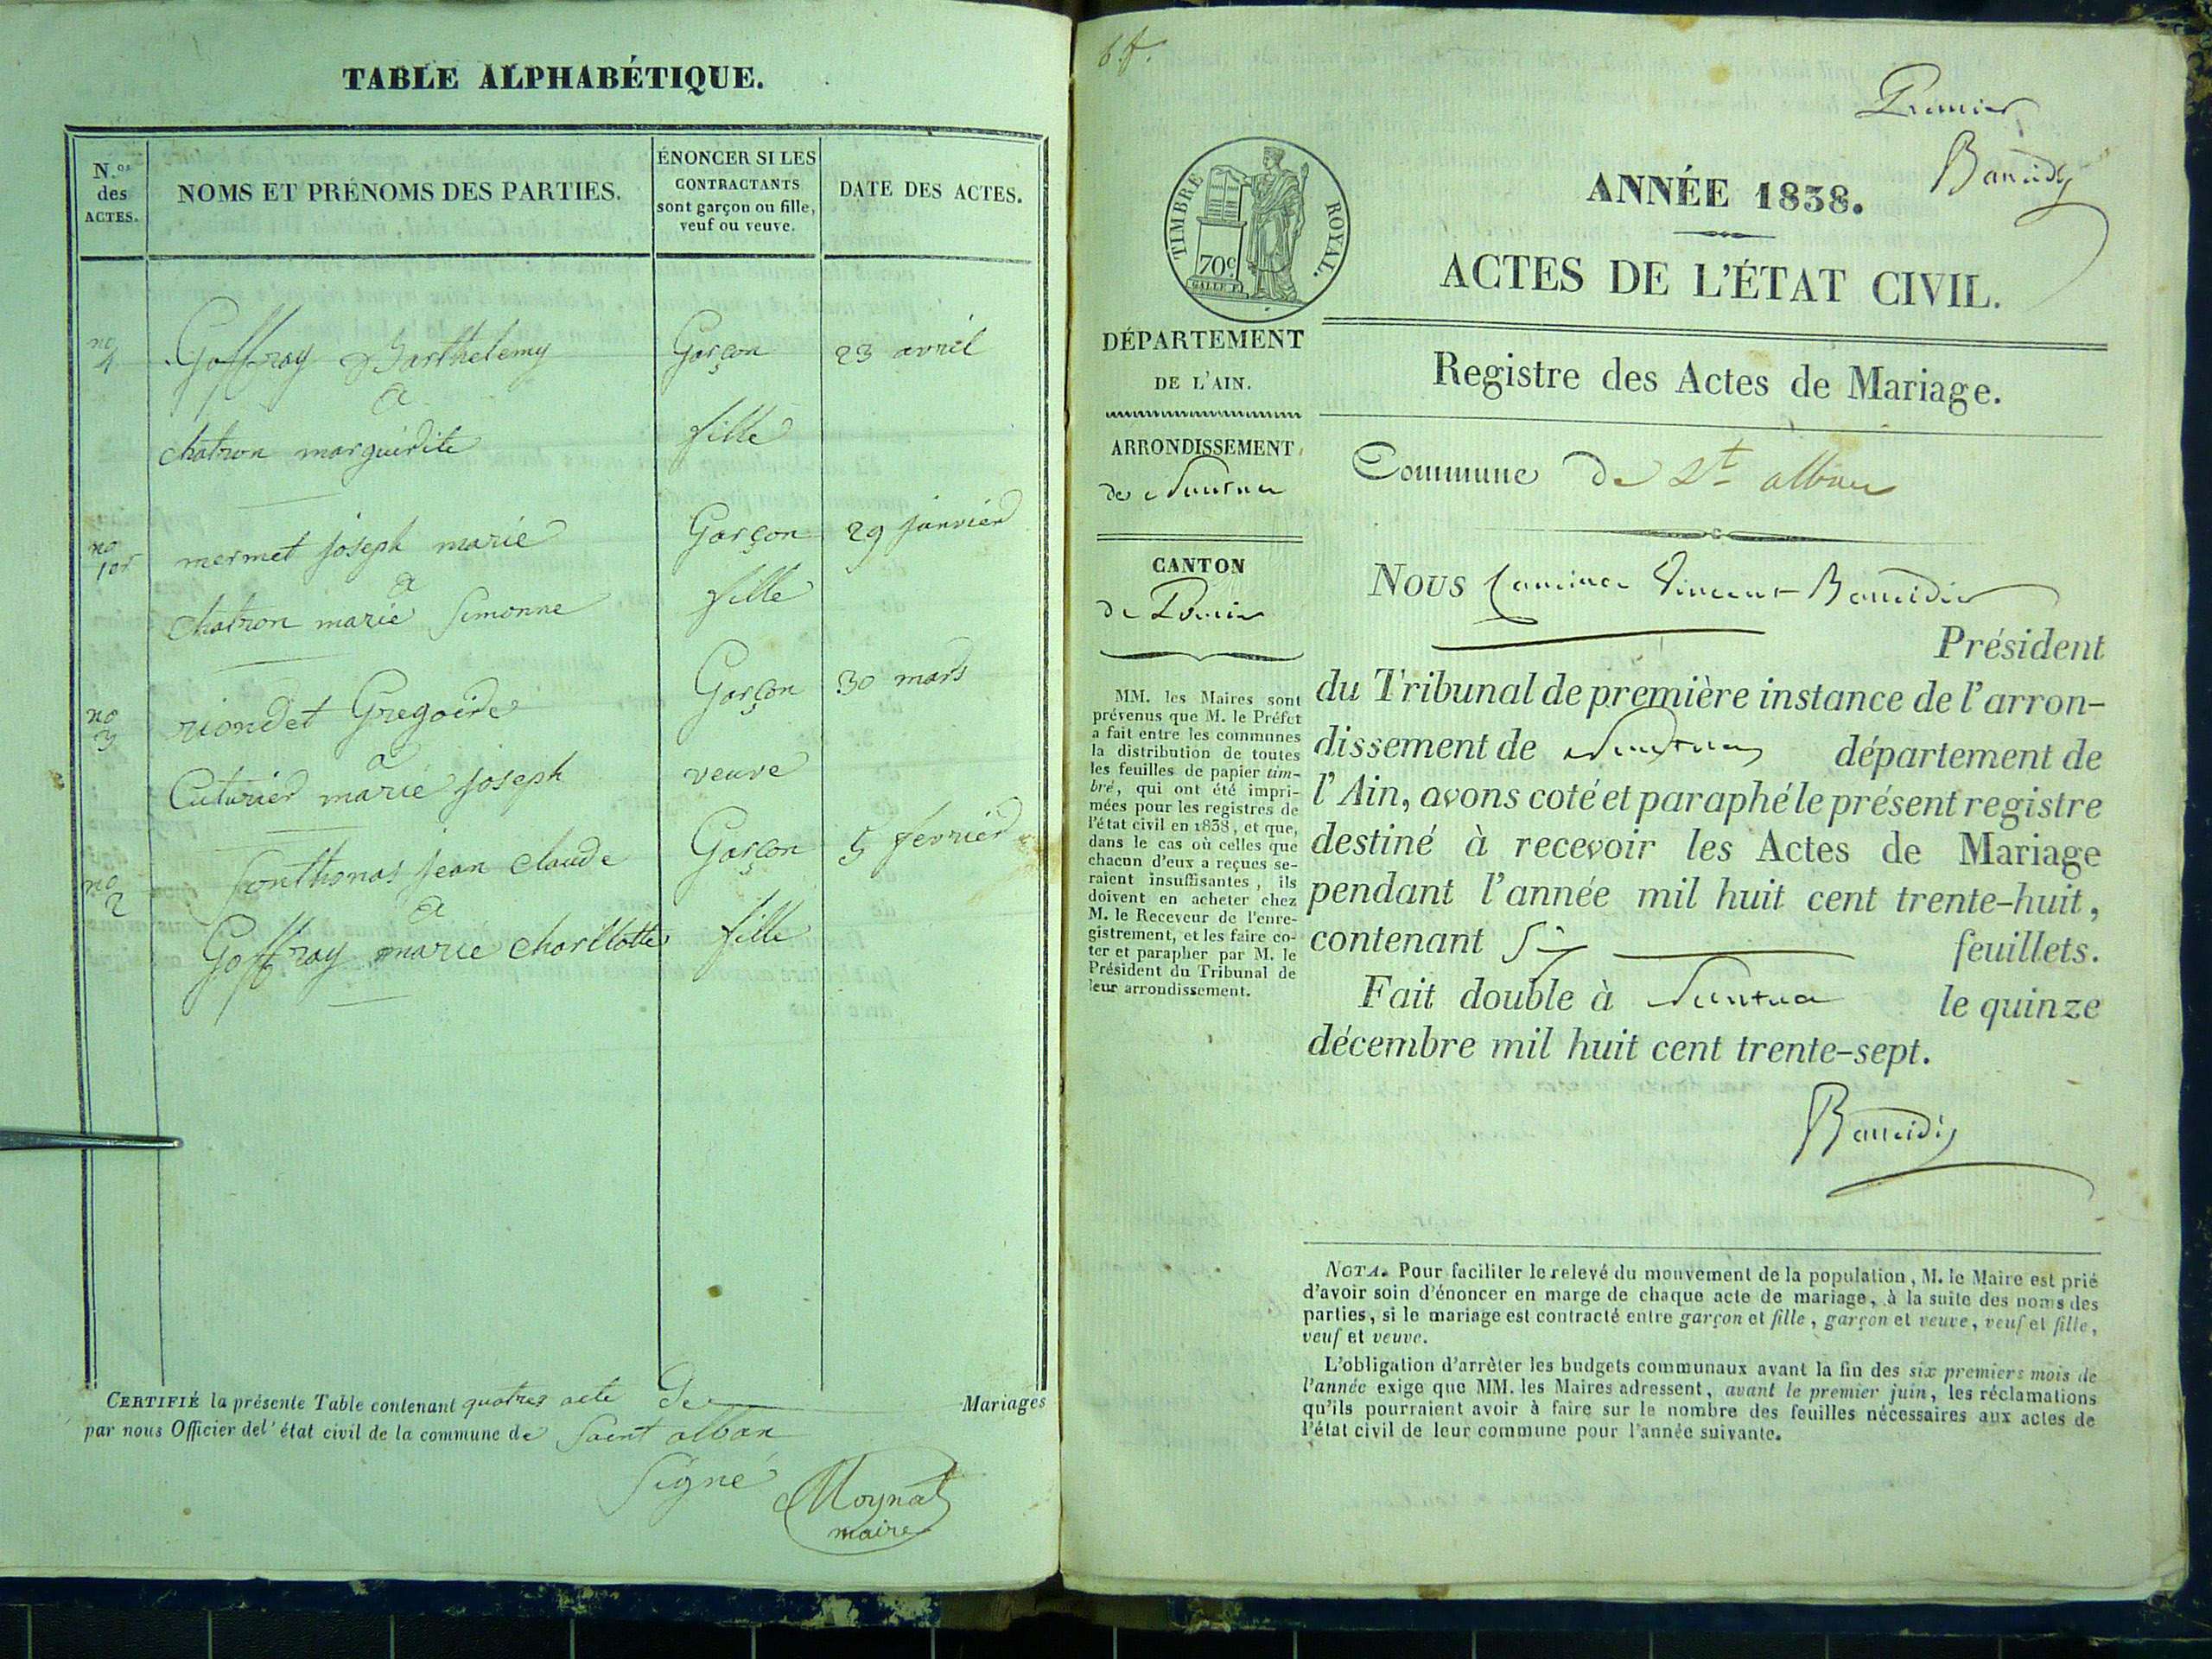 TABLE ALPHABÉTIQUE.
N.os des ACTES.
NOMS ET PRÉNOMS DES PARTIES.
ÉNONCER SI LES CONTRACTANTS sont garçon ou fille, veuf ou veuve.
DATE DES ACTES.
no 4 Goffray Barthelemy Garçon 23 avril
a
chatron marguerite fille
no 1er mermet joseph marie Garçon 29 janvier
a
chatron marie Simonne fille
no 3 riondet Gregoire Garçon 30 mars
a
Cuturier marie joseph veuve
no 2 fonthonas jean claude Garçon 5 février
a
Goffray marie charllotte fille
CERTIFIÉ la présente Table contenant quatres acte de Mariages
par nous Officier del' état civil de la commune de Saint alban
Signé
Moynat
maire
6 f.
Premier
TIMBRE ROYAL.
70c
GALLE F.
ANNÉE 1838.
ACTES DE L'ÉTAT CIVIL.
DÉPARTEMENT
DE L'AIN.
ARRONDISSEMENT
de Nantua
CANTON
de Poncin
MM. les Maires sont
prévenus que M. le Préfet
a fait entre les communes
la distribution de toutes
les feuilles de papier tim-
bré, qui ont été impri-
mées pour les registres de
l'état civil en 1838, et que,
dans le cas où celles que
chacun d'eux a reçues se-
raient insuffisantes, ils
doivent en acheter chez
M. le Receveur de l'enre-
gistrement, et les faire co-
ter et parapher par M. le
Président du Tribunal de
leur arrondissement.
Registre des Actes de Mariage.
Commune de St alban
Nous Vincent
Président
du Tribunal de première instance de l'arron-
dissement de Nantua département de
l'Ain, avons coté et paraphé le présent registre
destiné à recevoir les Actes de Mariage
pendant l'année mil huit cent trente-huit,
contenant Six feuillets.
Fait double à Nantua le quinze
décembre mil huit cent trente-sept.
NOTA. Pour faciliter le relevé du mouvement de la population, M. le Maire est prié
d'avoir soin d'énoncer en marge de chaque acte de mariage, à la suite des noms des
parties, si le mariage est contracté entre garçon et fille, garçon et veuve, veuf et fille,
veuf et veuve.
L'obligation d'arrêter les budgets communaux avant la fin des six premiers mois de
l'année exige que MM. les Maires adressent, avant le premier juin, les réclamations
qu'ils pourraient avoir à faire sur le nombre des feuilles nécessaires aux actes de
l'état civil de leur commune pour l'année suivante.